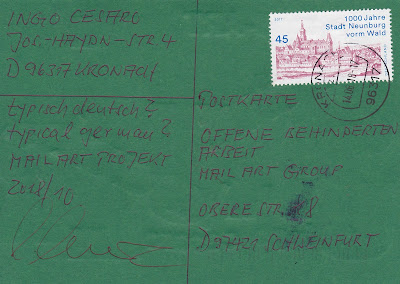 INGO CESARO
JOS.-HAYDN-STR.4
D 96317 KRONACH
typisch deutsch?
typical german?
MAIL ART PROJEKT
2018/10.
2017
1000 Jahre
Stadt Neunburg
vorm Wald
45
96317
POSTKARTE
OFFENE BEHINDERTEN
ARBEIT
MAIL ART GROUP
OBERE STR. 8
D 97421 SCHWEINFURT